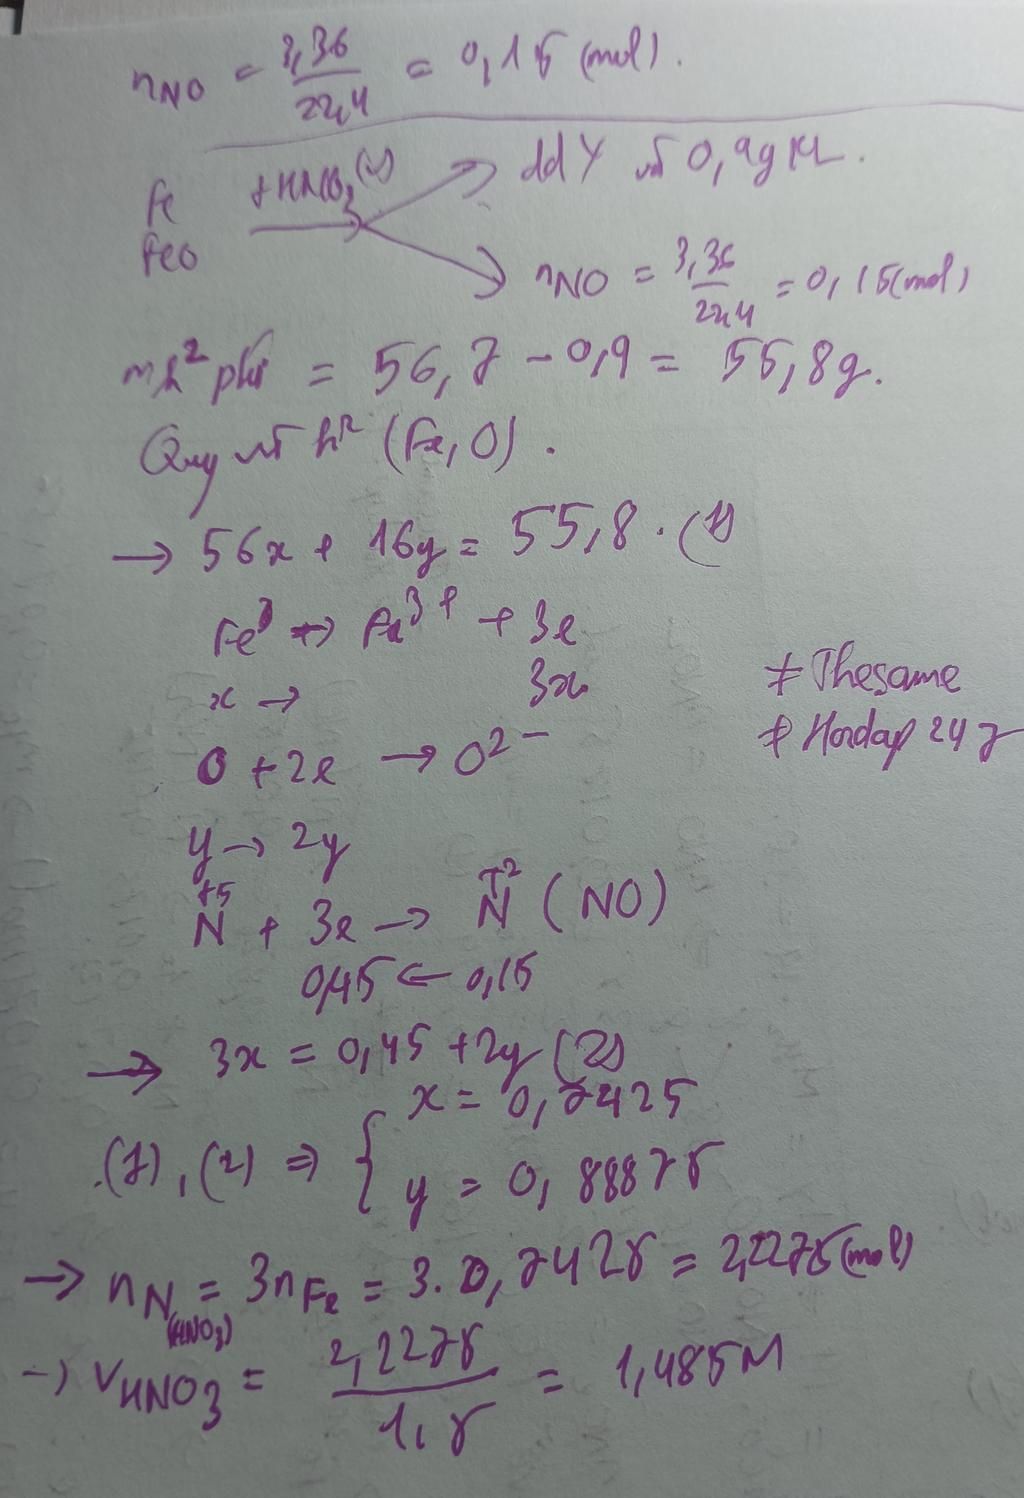 nNO = 3,36 / 22,4 = 0,15 (mol).
Fe
FeO
+HNO3 (l)
dd Y và 0,9g KL.
nNO = 3,36 / 22,4 = 0,15 (mol)
m h² pứ = 56,7 - 0,9 = 55,8g.
Quy về h² (Fe, O).
→ 56x + 16y = 55,8. (1)
Fe → Fe3+ + 3e
x → 3x
O + 2e → O2-
y → 2y
+5 N + 3e → +2 N (NO)
0,45 ← 0,15
→ 3x = 0,45 + 2y (2)
(1), (2) ⇒ { x = 0,7425
y = 0,88875
→ nN (HNO3) = 3nFe = 3. 0,7425 = 2,2275 (mol)
→ VHNO3 = 2,2275 / 1,5 = 1,485M
# Thesame
# Hoidap247